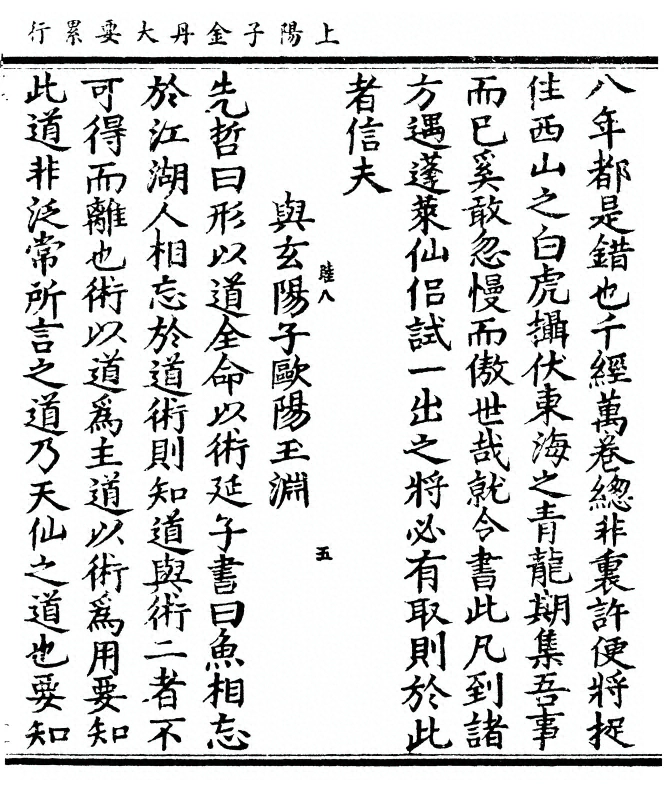 上陽子金丹大要累行
八年都是錯也千經萬卷總非裏許便將捉
住西山之白虎攝伏東海之青龍期集吾事
而已奚敢忽慢而傲世哉就令書此凡到諸
方遇蓬萊仙侶試一出之將必有取則於此
者信夫
陸八
五
與玄陽子歐陽玉淵
先哲曰形以道全命以術延子書曰魚相忘
於江湖人相忘於道術則知道與術二者不
可得而離也術以道爲主道以術爲用要知
此道非泛常所言之道乃天仙之道也要知